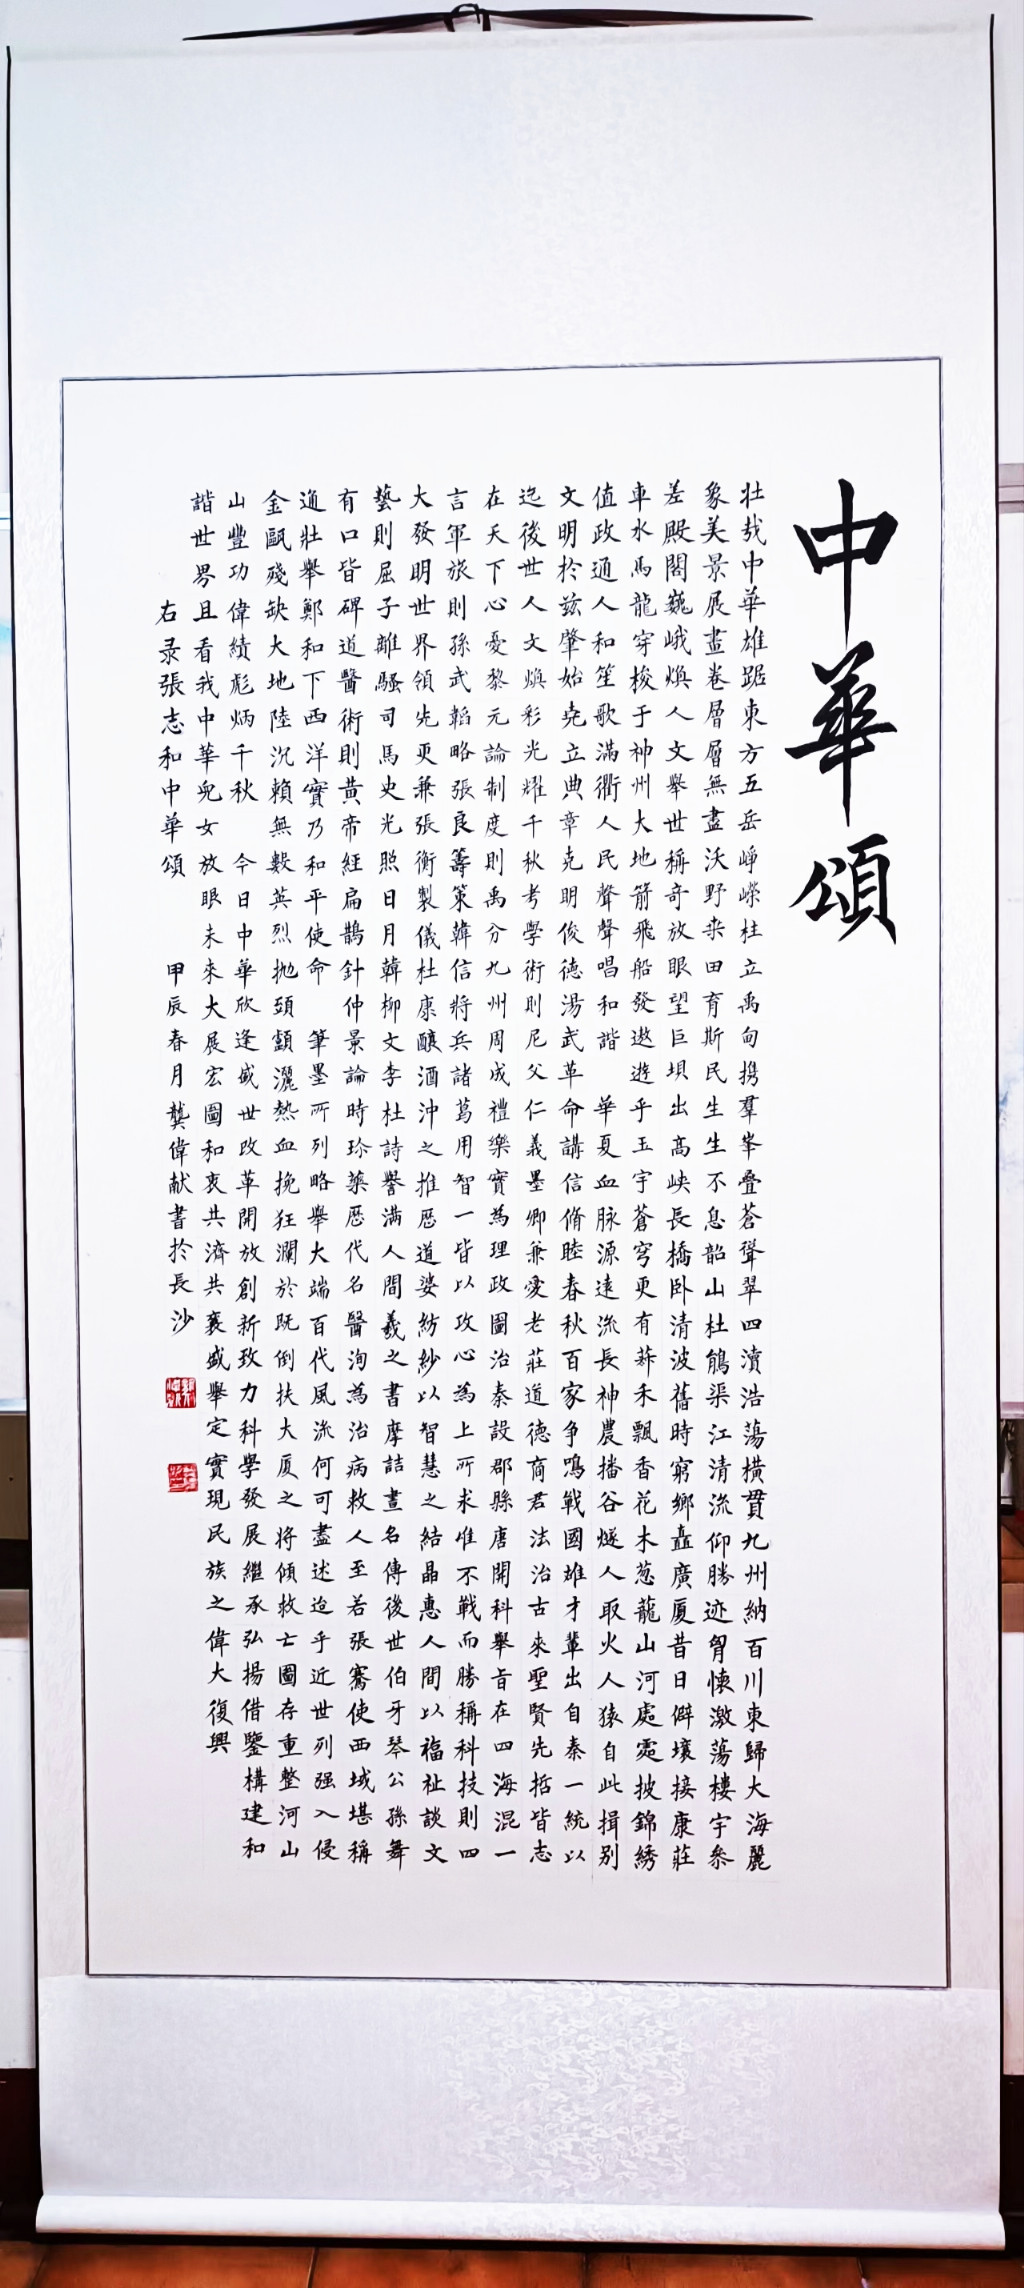 中華頌
壯哉中華雄踞東方五岳崢嶸柱立禹甸携羣峯疊蒼聳翠四瀆浩蕩横貫九州納百川東歸大海麗
象美景展畫卷層層無盡沃野桒田育斯民生生不息韶山杜鵑渠江清流仰勝迹胷懷激蕩樓宇叅
差殿閣巍峨煥人文舉世稱奇放眼望巨坝出高峽長橋卧清波舊時窮鄉矗廣厦昔日僻壤接康莊
車水馬龍穿梭于神州大地箭飛船發遨遊乎玉宇蒼穹更有蕣禾飄香花木葱蘢山河處處披錦綉
值政通人和笙歌滿衢人民聲聲唱和諧 華夏血脉源遠流長神農播谷燧人取火人猿自此揖别
文明於兹肇始堯立典章克明俊德湯武革命講信脩睦春秋百家争鳴戰國雄才輩出自秦一統以
迄後世人文煥彩光耀千秋考學術則尼父仁義墨卿兼愛老莊道德商君法治古來聖賢先哲皆志
在天下心憂黎元論制度則禹分九州周成禮樂實為理政圖治秦設郡縣唐開科舉旨在四海混一
言軍旅則孫武韜略張良籌策韓信將兵諸葛用智一皆以攻心為上所求惟不戰而勝稱科技則四
大發明世界領先更兼張衡製儀杜康釀酒沖之推曆道婆紡紗以智慧之結晶惠人間以福祉談文
藝則屈子離騷司馬史光照日月韓柳文李杜詩譽满人間羲之書摩詰畫名傳後世伯牙琴公孫舞
有口皆碑道醫術則黄帝經扁鵲針仲景論時珍藥歷代名醫洵為治病救人至若張騫使西域堪稱
通壯舉鄭和下西洋實乃和平使命 筆墨所列略舉大端百代風流何可盡述迨乎近世列强入侵
金甌殘缺大地陸沉賴無數英烈抛頭顱灑熱血挽狂瀾於既倒扶大厦之將傾救亡圖存重整河山
山豐功偉績彪炳千秋 今日中華欣逢盛世改革開放創新致力科學發展繼承弘揚借鑒構建和
諧世界且看我中華兒女放眼未來大展宏圖和衷共濟共襄盛舉定實現民族之偉大復興
右录張志和中華頌 甲辰春月龔偉献書於長沙